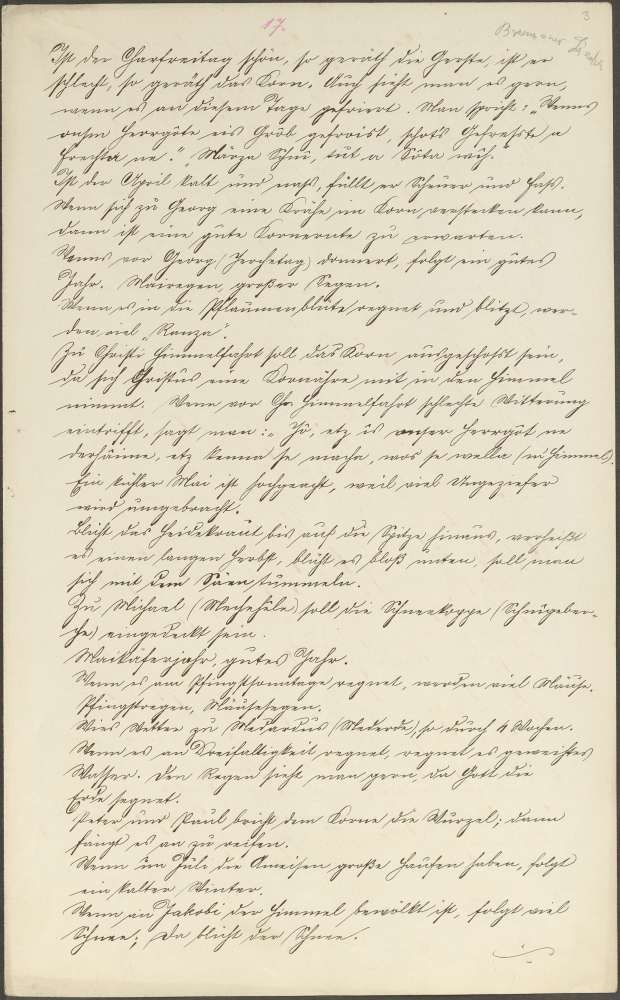 17.
3
Ist der Charfreitag schön, so geräth die Gerste, ist er
schlecht, so geräth das Korn. Auch sieht man es gern,
wenn es an diesem Tage gefriert. Man spricht: „Wenns
onsm Herrgöte eis Grob gefroist, schots Gefrehste a
Frechta ne.“ „Märza Schni, tut a Sota wih.“
Ist der April kalt und naß, füllt er Scheuer und Faß.
Wenn sich zu Georg eine Krähe im Korn verstecken kann,
dann ist eine gute Kornernte zu erwarten.
Wenns vor Georg (Jerchetag) donnert, folgt ein gutes
Jahr. Mairegen, großer Segen.
Wenn es in die Pflaumenblüte regnet und blitzt, wer-
den viel „Ranza“.
Zu Christi Himmelfahrt soll das Korn ausgeschoßt sein,
da sich Christus eine Kornähre mit in den Himmel
nimmt. Wenn vor Chr. Himmelfahrt schlechte Witterung
eintrifft, sagt man: „Jo, etz is onser Herrgot ne
derhäime, etz kenna se macha, wos se wella (im Himmel).
Ein kühler Mai ist hochgeacht, weil viel Ungeziefer
wird umgebracht.
Blüht das Heidekraut bis auf die Spitze hinaus, verheißt
es einen langen Herbst, blüht es bloß unten, soll man
sich mit dem Säen tummeln.
Zu Michael (Mechehéle) soll die Schneekoppe (Schnigeber-
che) eingedeckt sein.
Maikäferjahr, gutes Jahr.
Wenn es am Pfingstsonntage regnet, werden viel Mäuse.
Pfingstregen, Mäusesegen.
Wies Wetter zu Medardus (Mederde), so durch 4 Wochen.
Wenn es an Dreifaltigkeit regnet, regnet es geweihtes
Wasser. Den Regen sieht man gern, da Gott die
Erde segnet.
Peter und Paul bricht dem Korne die Wurzel; dann
fängt es an zu reifen.
Wenn im Juli die Ameisen große Haufen haben, folgt
ein kalter Winter.
Wenn an Jakobi der Himmel bewölkt ist, folgt viel
Schnee; da blüht der Schnee.